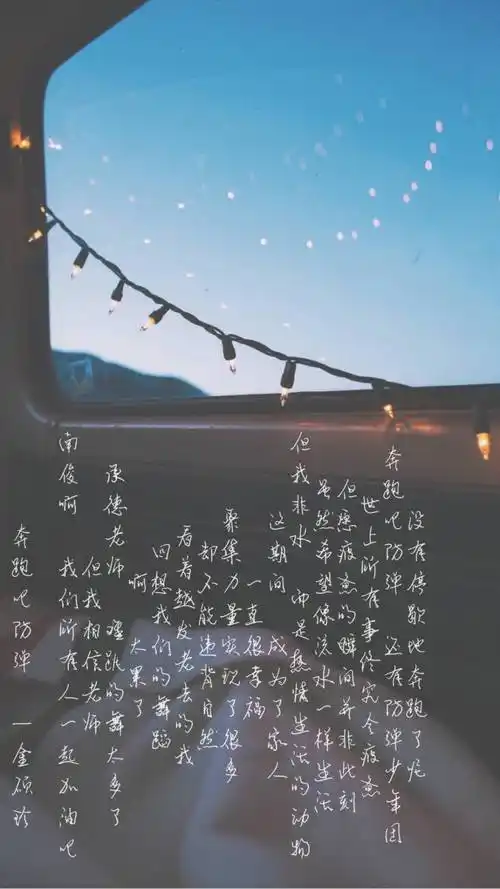 没有停歇地奔跑了呢
奔跑吧防弹 还有防弹少年团
世上所有事终究会疲惫
但疲惫的瞬间并非此刻
虽然希望像流水一样生活
但我非水 而是热情生活的动物
这期间 成为了家人
一直很幸福
聚集力量实现了很多
却不能违背自然
看着越发老去的我
回想我们的舞蹈
啊 太累了
承德老师 难跳的舞太多了
但我相信老师
南俊啊 我们所有人一起加油吧
奔跑吧防弹 —金硕珍